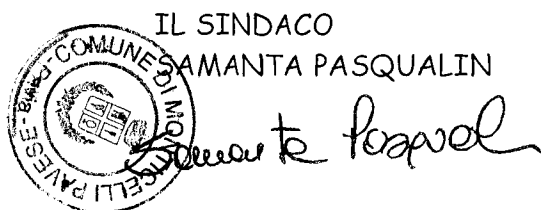 IL SINDACO
SAMANTA PASQUALIN
COMUNE DI MONTICELLI PAVESE - Pavia
Samanta Pasqual